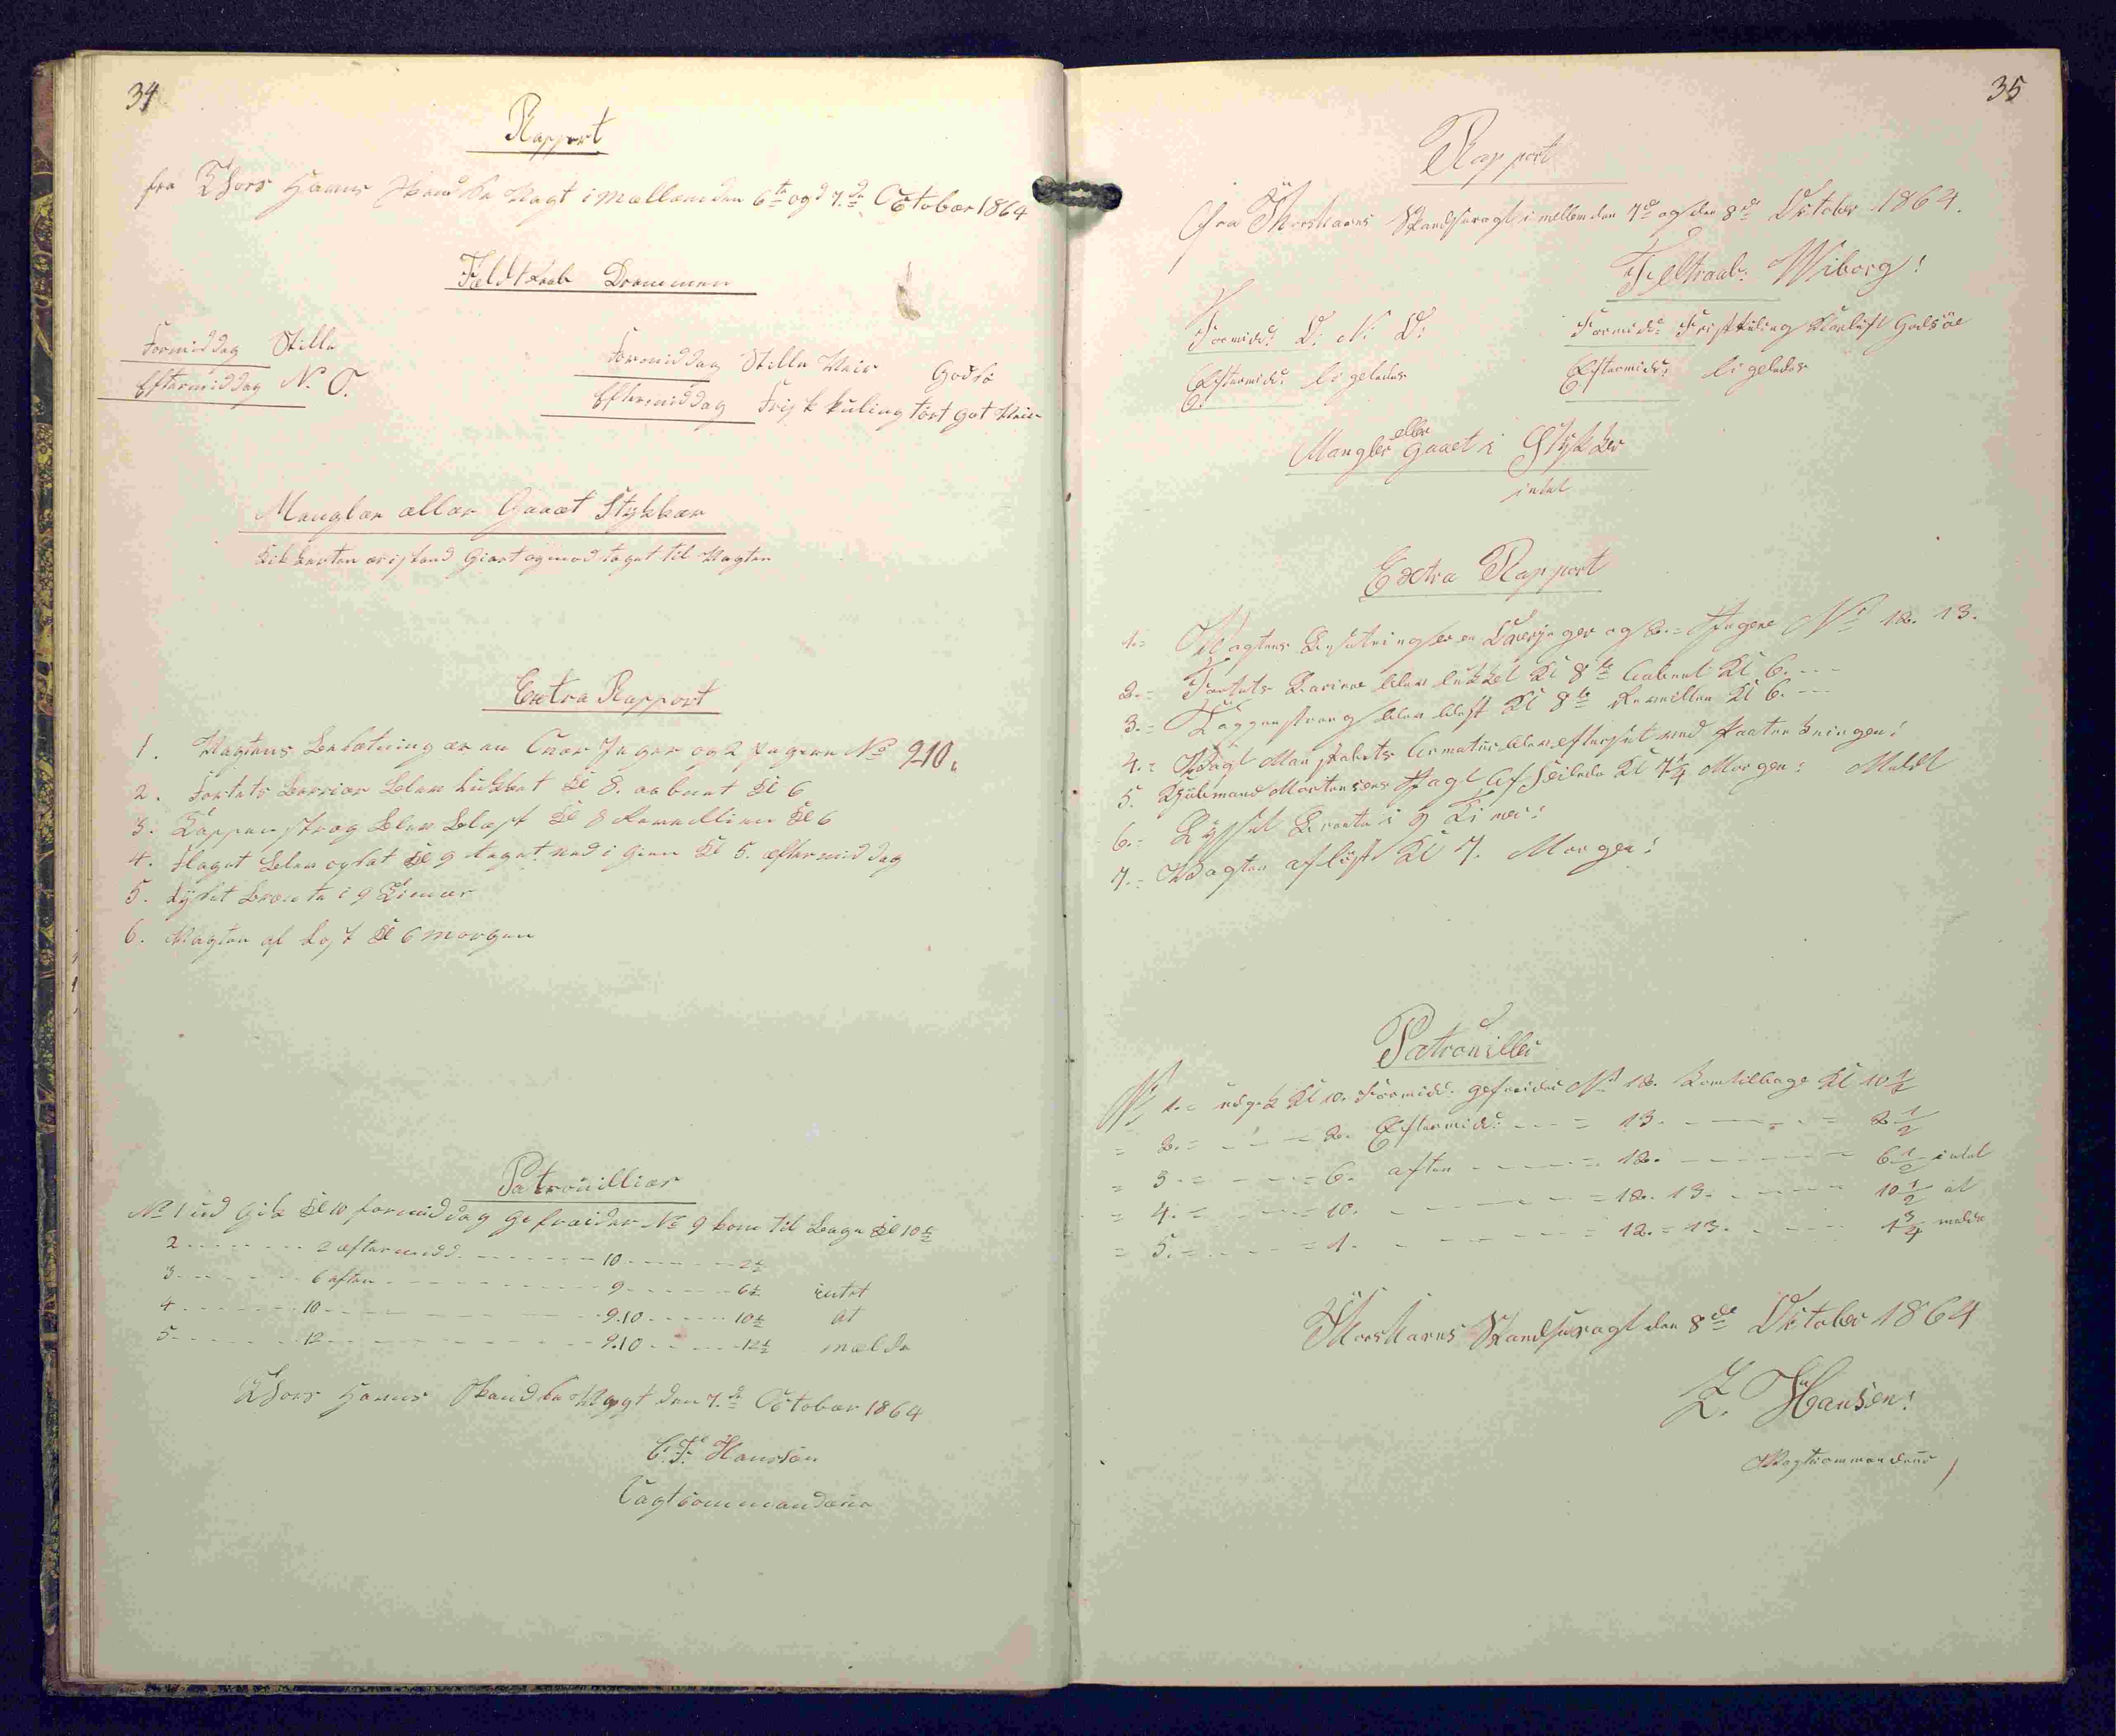 34
Rapport
fra Thors Havns Skandse Vagt imællem den 6te og 7de October 1864
Feldtraab Drammen
Formiddag Stille
Eftermiddag N. O.
Formiddag Stille Veir Godsö
Eftermiddag Frisk kuling tört got Veir
Manglær ællær Gaaet Stykkær
Extra Rapport
1. Vagtens besætning ær en Overjæger og 2 Jægere No 9 10.
2. Fortets barriær blev lukket Kl 8. aabnet Kl 6
3. Tappenstrog blev blæst Kl 8 Reveillien Kl 6
4. Flaget blev opsat Kl 9 taget ned igien Kl 5. æftermiddag
5. Lyset brænte i 9 Timær
6. Vagten aflöst Kl 6 morgen
Patrouilliær
No 1 udgik Kl 10 formiddag gefreider No 9 kom tilbage Kl 10½
2 - - - - 2 æftermidd. - - - - 10 - - - - 2½
3 - - - - 6 aften - - - - 9 - - - - 6½ intet
4 - - - - 10 - - - - 9.10 - - - - 10½ at
5 - - - - 12 - - - - 9.10 - - - - 12½ mælde
Thors Havns Skandse Vagt den 7de October 1864
C. F. Hanssen
Vagtcommandeur
35
Rapport
fra Thorshavns Skandsevagt imellem den 7de og den 8de Oktober 1864.
Feltraab: Wiborg!
Formidd: O. N. O.
Eftermidd: ligeledes
Formidd: Frisk kuling Klarluft Godsöe
Eftermidd: ligeledes
Mangler eller Gaaet i Stykker
intet
Extra Rapport
1. = Vagtens Besætning er en Overjæger og 2. = Jægere No 12. 13.
2. = Fortets Bariere blev lukket Kl 8te aabent Kl 6. - - -
3. = Tappenstreng blev blæst Kl 8te Reveillen Kl 6. - - -
4. = Vagt Mandskabets Armatur blev efterset ved Paatrækningen!
5. Mortensens Jagt afseilede Kl 7¼ Morgen: Meldt
6. = Lysset Brænte i 9 Timer:
7. = Vagten aflöst Kl 7. Morgen!
Patrouiller
No 1. = udgik Kl 10. Formidd. gefreider No 12. kom tilbage Kl 10½
= 2. = - - - = 2. Eftermidd: - - - = 13. - - - - = 2½
= 3. = - - - = 6. aften - - - - = 12. - - - - = 6½ intet
= 4. = - - - = 10. - - - - = 12. 13. - - - - 10½ at
= 5. = - - - = 1. - - - - = 12. = 13. - - - - 1¾ melde
Thorshavns Skandsevagt den 8de Oktober 1864
Z. Hansen!
Vagtcommandeur